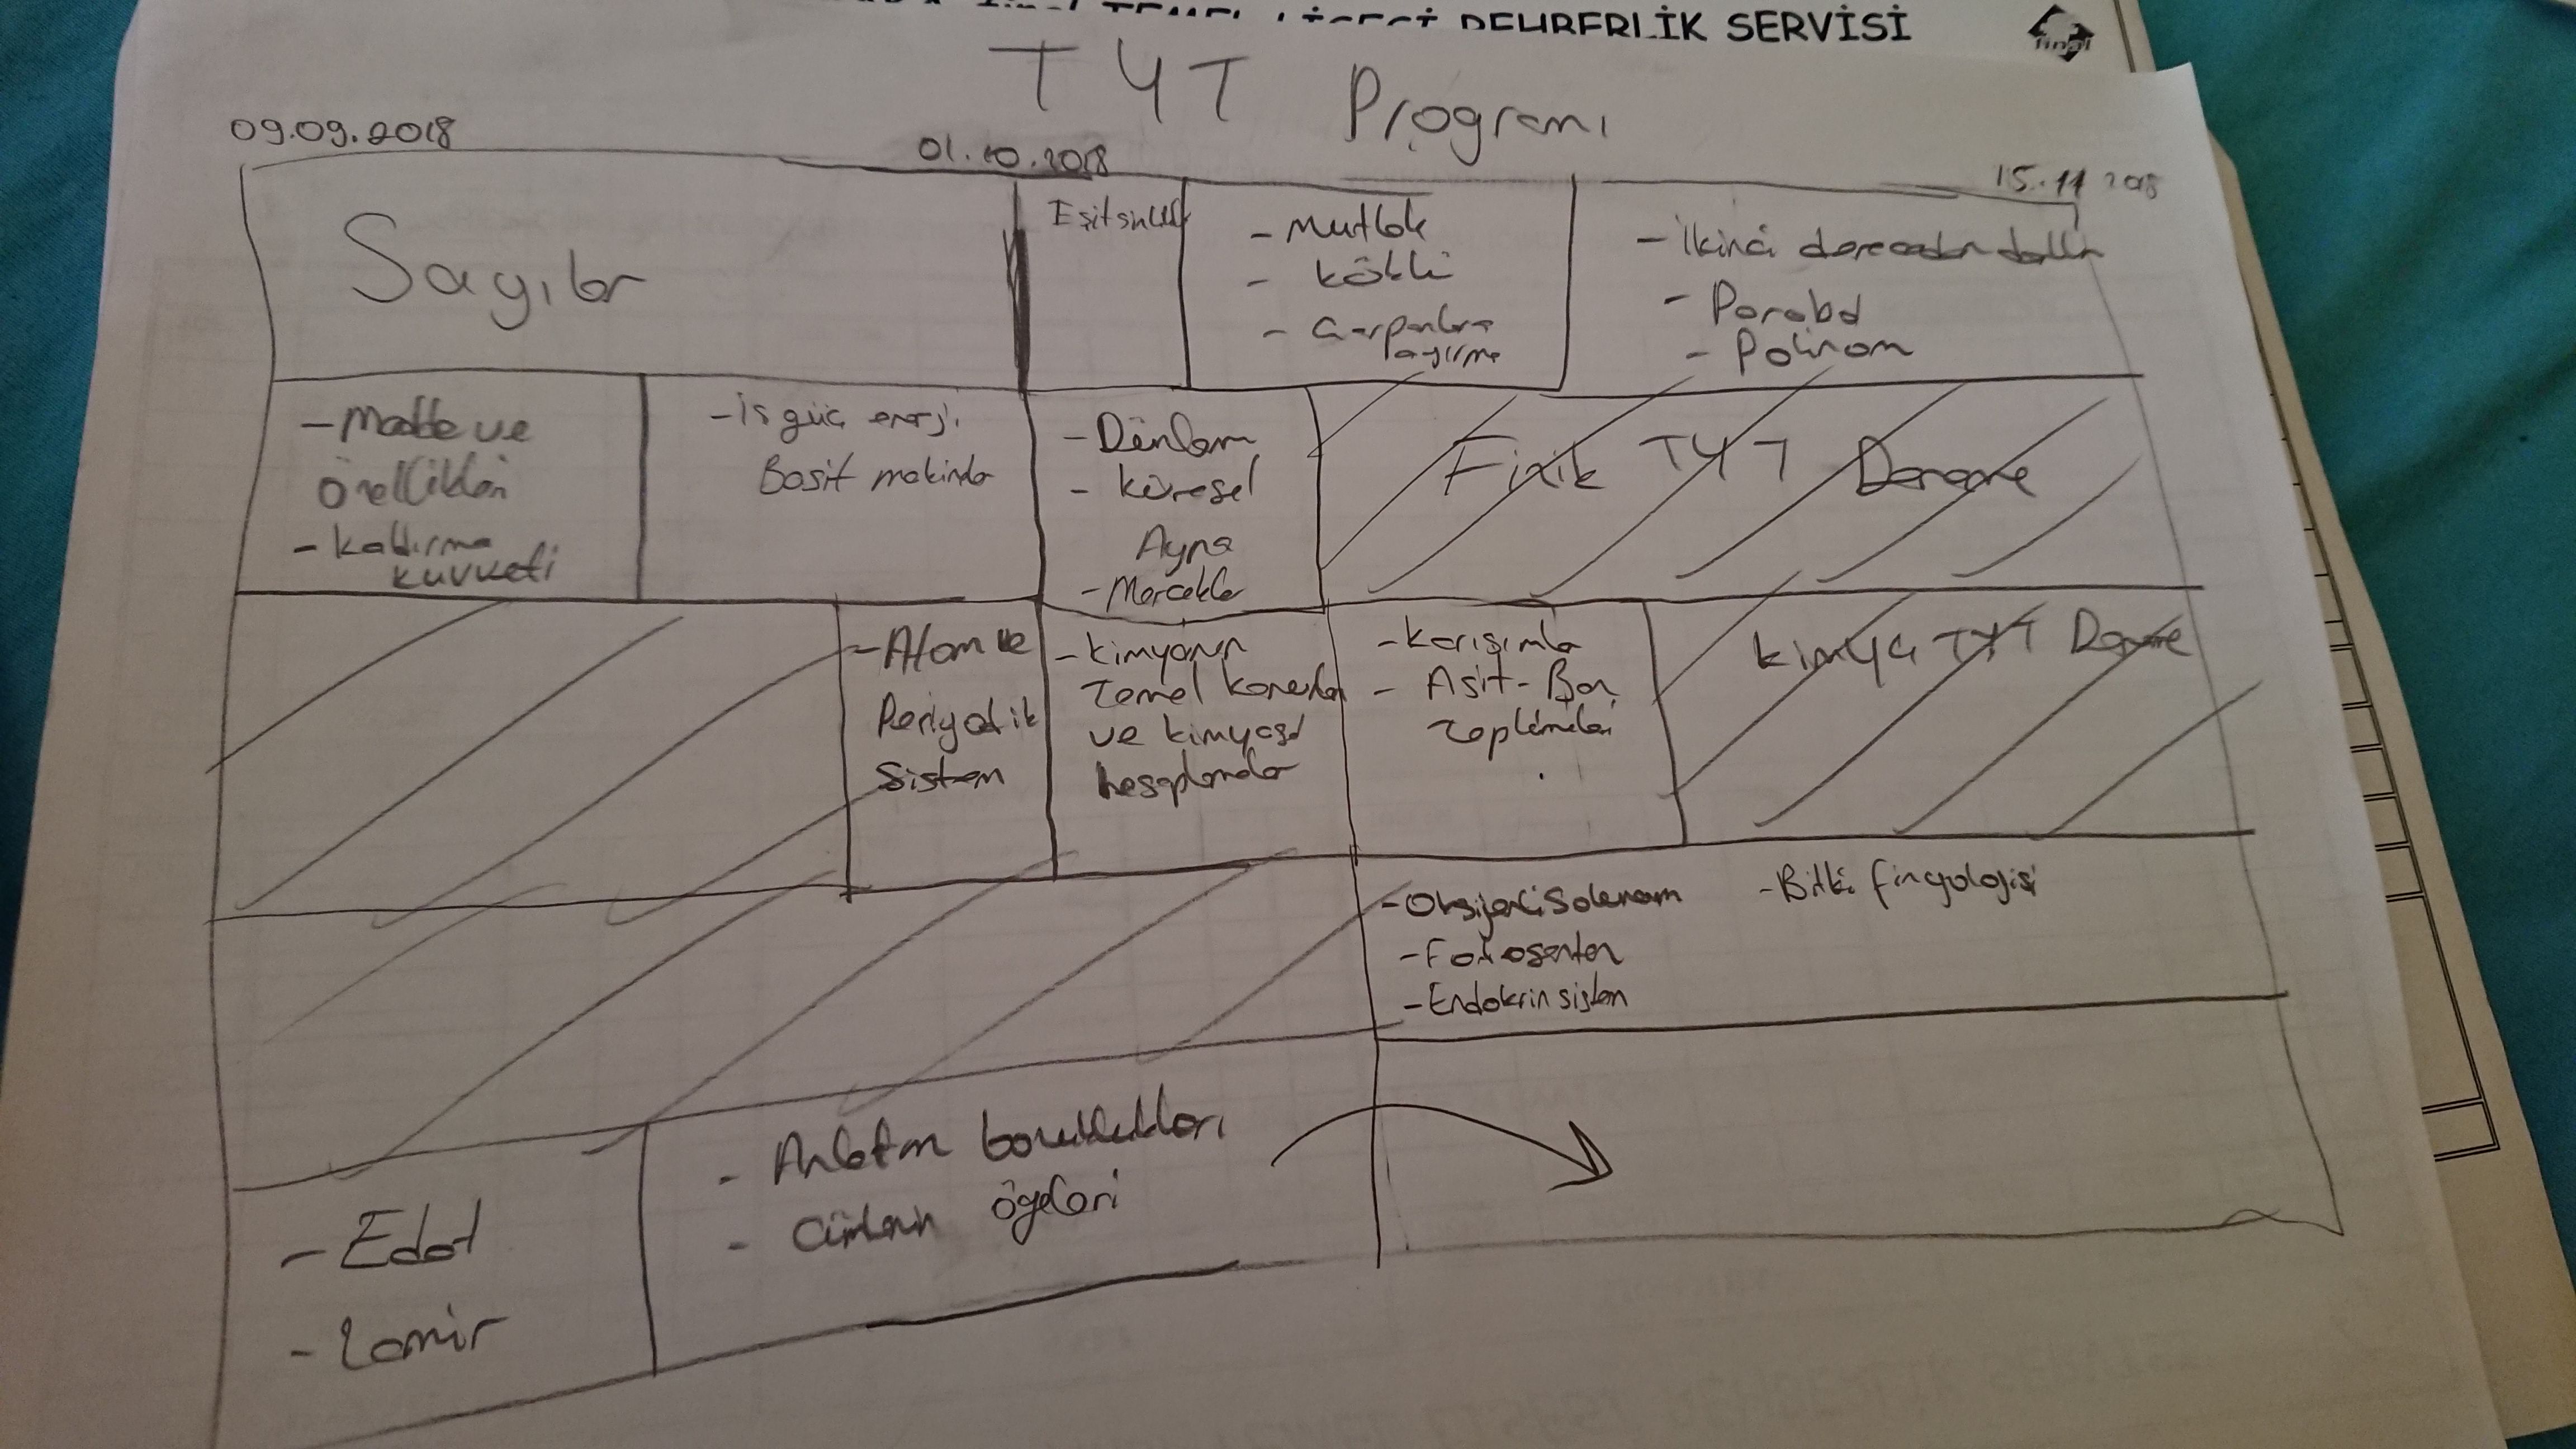 REHBERLİK SERVİSİ
final
TYT Programı
09.09.2018
01.10.2018
15.11.2018
Sayılar
Eşitsizlik
- Mutlak
- Köklü
- Çarpanlara
ayırma
- İkinci dereceden
- Parabol
- Polinom
- Madde ve
Özellikleri
- Kaldırma
kuvveti
- İş güç enerji
Basit makinalar
- Düzlem
- Küresel
Ayna
- Mercekler
Fizik TYT Deneme
- Atom ve
Periyodik
Sistem
- Kimyanın
Temel Kanunları
ve kimyasal
hesaplamalar
- Karışımlar
- Asit-Baz
Kimya TYT Deneme
- Oksijenli Solunum
- Fotosentez
- Endokrin sistem
- Bitki fizyolojisi
- Edat
- Zamir
- Anlatım bozuklukları
- Cümlenin öğeleri